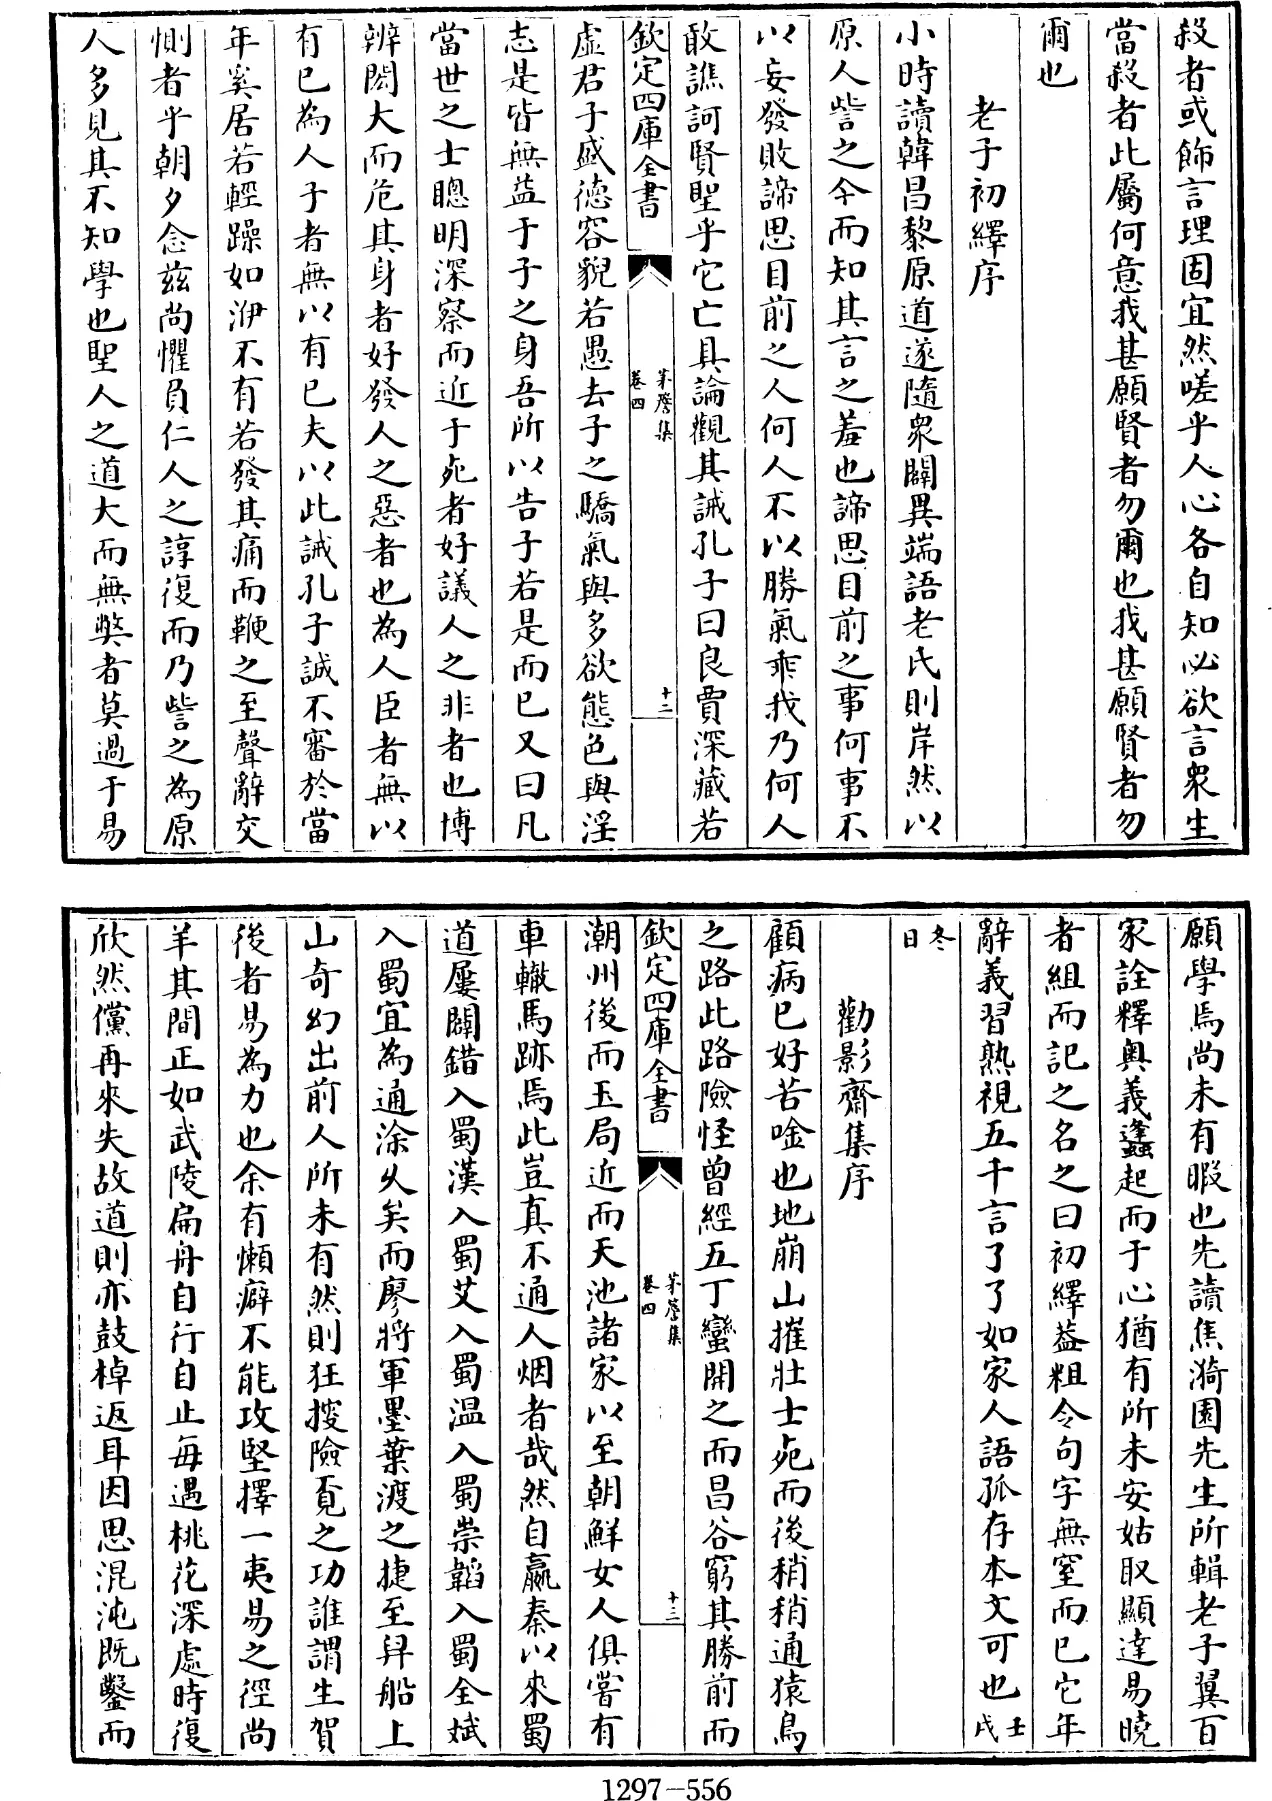 殺者或飾言理固宜然嗟乎人心各自知必欲言衆生
當殺者此屬何意我甚願賢者勿爾也我甚願賢者勿
爾也
老子初繹序
小時讀韓昌黎原道遂隨衆闢異端語老氏則岸然以
原人訾之今而知其言之羞也諦思目前之事何事不
以妄發敗諦思目前之人何人不以勝氣乖我乃何人
敢譙訶賢聖乎它亡具論觀其誡孔子曰良賈深藏若
欽定四庫全書
茅簷集
卷四
十二
虛君子盛德容貌若愚去子之驕氣與多欲態色與淫
志是皆無益于子之身吾所以告子若是而已又曰凡
當世之士聰明深察而近于死者好議人之非者也博
辨閎大而危其身者好發人之惡者也為人臣者無以
有已為人子者無以有已夫以此誡孔子誠不審於當
年奚居若輕躁如洢不有若發其痛而鞭之至聲辭交
惻者乎朝夕念兹尚懼負仁人之諄復而乃訾之為原
人多見其不知學也聖人之道大而無弊者莫過于易
願學焉尚未有暇也先讀焦漪園先生所輯老子翼百
家詮釋奥義蠭起而于心猶有所未安姑取顯達易曉
者組而記之名之曰初繹葢粗令句字無窒而已它年
辭義習熟視五千言了了如家人語孤存本文可也壬戌
冬日
勸影齋集序
顧病已好苦唫也地崩山摧壯士死而後稍稍通猿鳥
之路此路險怪曾經五丁蠻開之而昌谷窮其勝前而
欽定四庫全書
茅簷集
卷四
十三
潮州後而玉局近而天池諸家以至朝鮮女人俱嘗有
車轍馬跡焉此豈真不通人烟者哉然自嬴秦以來蜀
道屢闢錯入蜀漢入蜀艾入蜀温入蜀崇韜入蜀全斌
入蜀宜為通涂久矣而廖將軍墨葉渡之捷至舁船上
山奇幻出前人所未有然則狂搜險覔之功誰謂生賀
後者易為力也余有懶癖不能攻堅擇一夷易之徑尚
羊其間正如武陵扁舟自行自止每遇桃花深處時復
欣然儻再來失故道則亦鼓棹返耳因思混沌既鑿而
1297-556